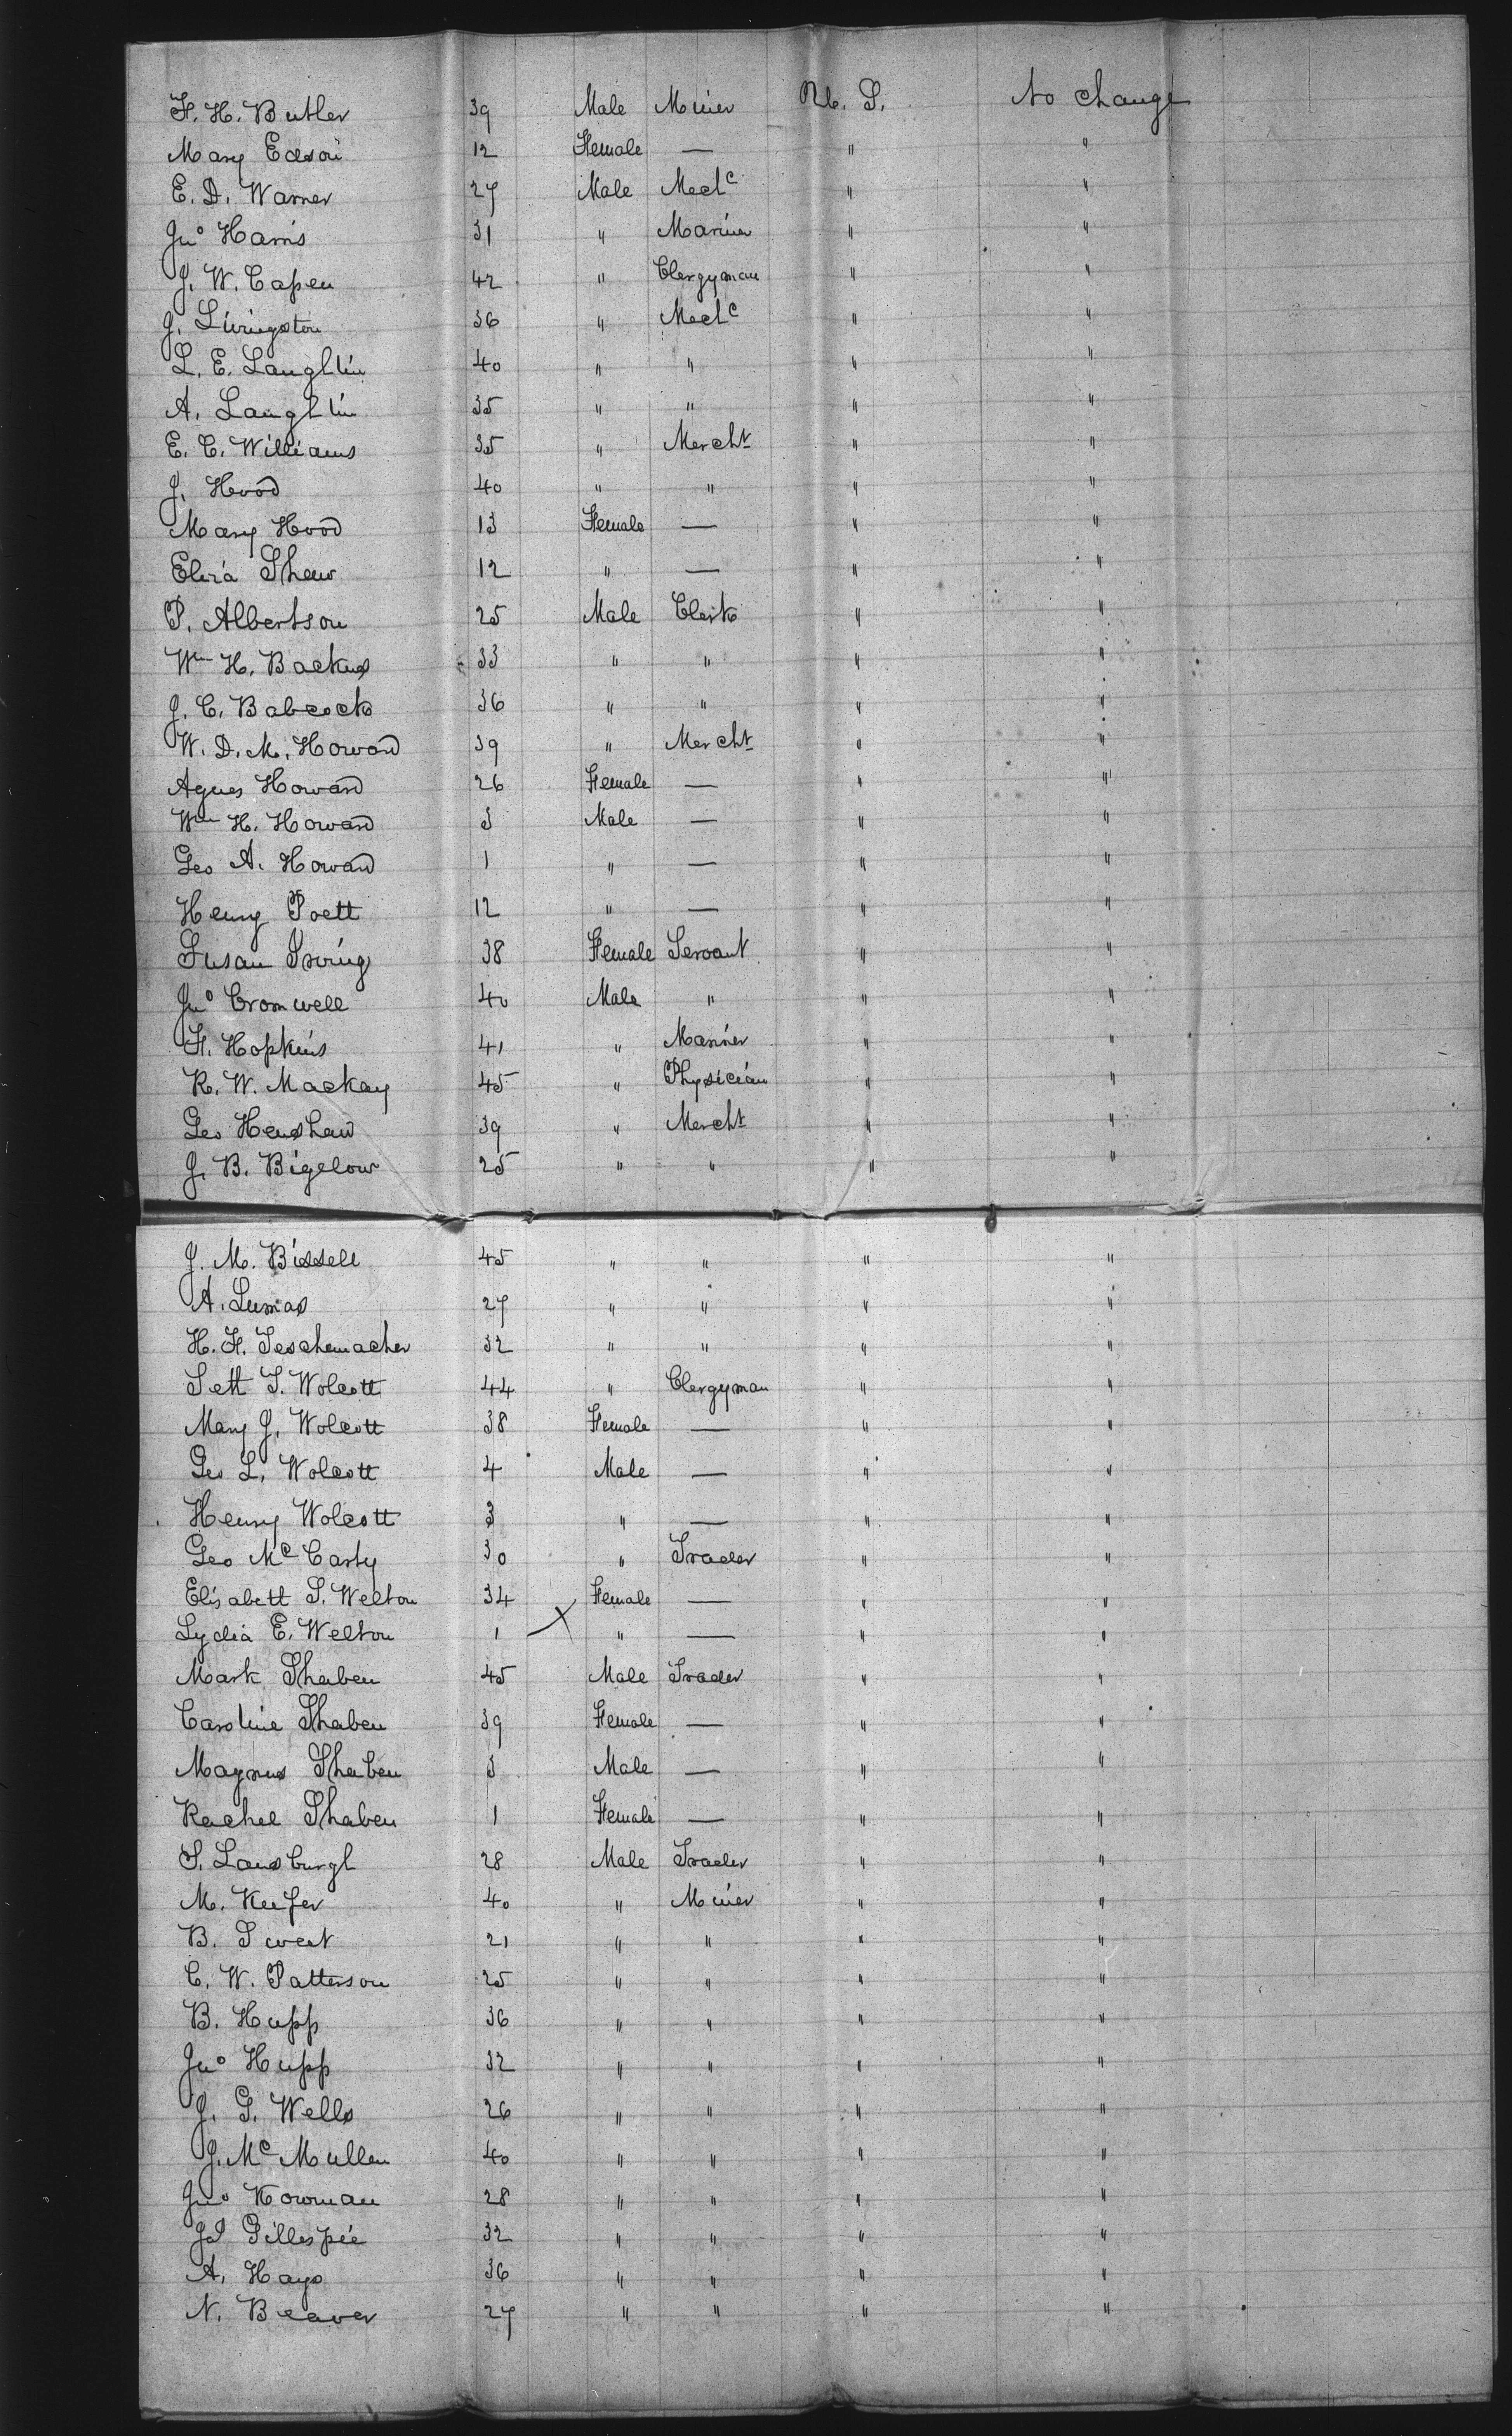 F. H. Butler 39 Male Miner U. S. No change
Mary Edson 12 Female — " "
E. D. Warner 27 Male Mech^c " "
Jn^o Harris 31 " Mariner " "
J. W. Capen 42 " Clergyman " "
J. Livingston 36 " Mech^c " "
L. E. Laughlin 40 " " " "
A. Laughlin 35 " " " "
E. C. Williams 35 " Mercht " "
J. Hood 40 " " " "
Mary Hood 13 Female — " "
Eliza Shaw 12 " — " "
P. Albertson 25 Male Clerk " "
W^m H. Backus 33 " " " "
J. C. Babcock 36 " " " "
W. D. M. Howard 39 " Mercht " "
Agnes Howard 26 Female — " "
W^m H. Howard 3 Male — " "
Geo A. Howard 1 " — " "
Henry Poett 12 " — " "
Susan Irving 38 Female Servant " "
Jn^o Cromwell 40 Male " " "
F. Hopkins 41 " Mariner " "
R. W. Mackay 45 " Physician " "
Geo Henshaw 39 " Mercht " "
J. B. Bigelow 25 " " " "
J. M. Bissell 45 " " " "
A. 27 " " " "
H. F. Teschemacher 32 " " " "
Seth T. Wolcott 44 " Clergyman " "
Mary J. Wolcott 38 Female — " "
Geo L. Wolcott 4 Male — " "
Henry Wolcott 3 " — " "
Geo M^c Carty 30 " Trader " "
Elisabeth S. Welton 34 Female — " "
Lydia E. Welton 1 X " — " "
Mark Thaben 45 Male Trader " "
Caroline Thaben 39 Female — " "
Magnus Thaben 3 Male — " "
Rachel Thaben 1 Female — " "
S. Lansburgh 28 Male Trader " "
M. Keefer 40 " Miner " "
B. Sweet 21 " " " "
C. W. Patterson 25 " " " "
B. Hupp 36 " " " "
Jn^o Hupp 32 " " " "
J. G. Wells 26 " " " "
J. M^c Mullen 40 " " " "
Jn^o Kowman 28 " " " "
Gillespie 32 " " " "
A. Hays 36 " " " "
N. Beaver 27 " " " "